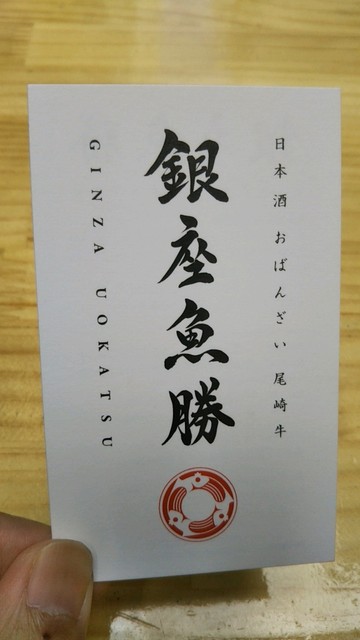 日本酒 おばんざい 尾崎牛
銀座魚勝
GINZA UOKATSU